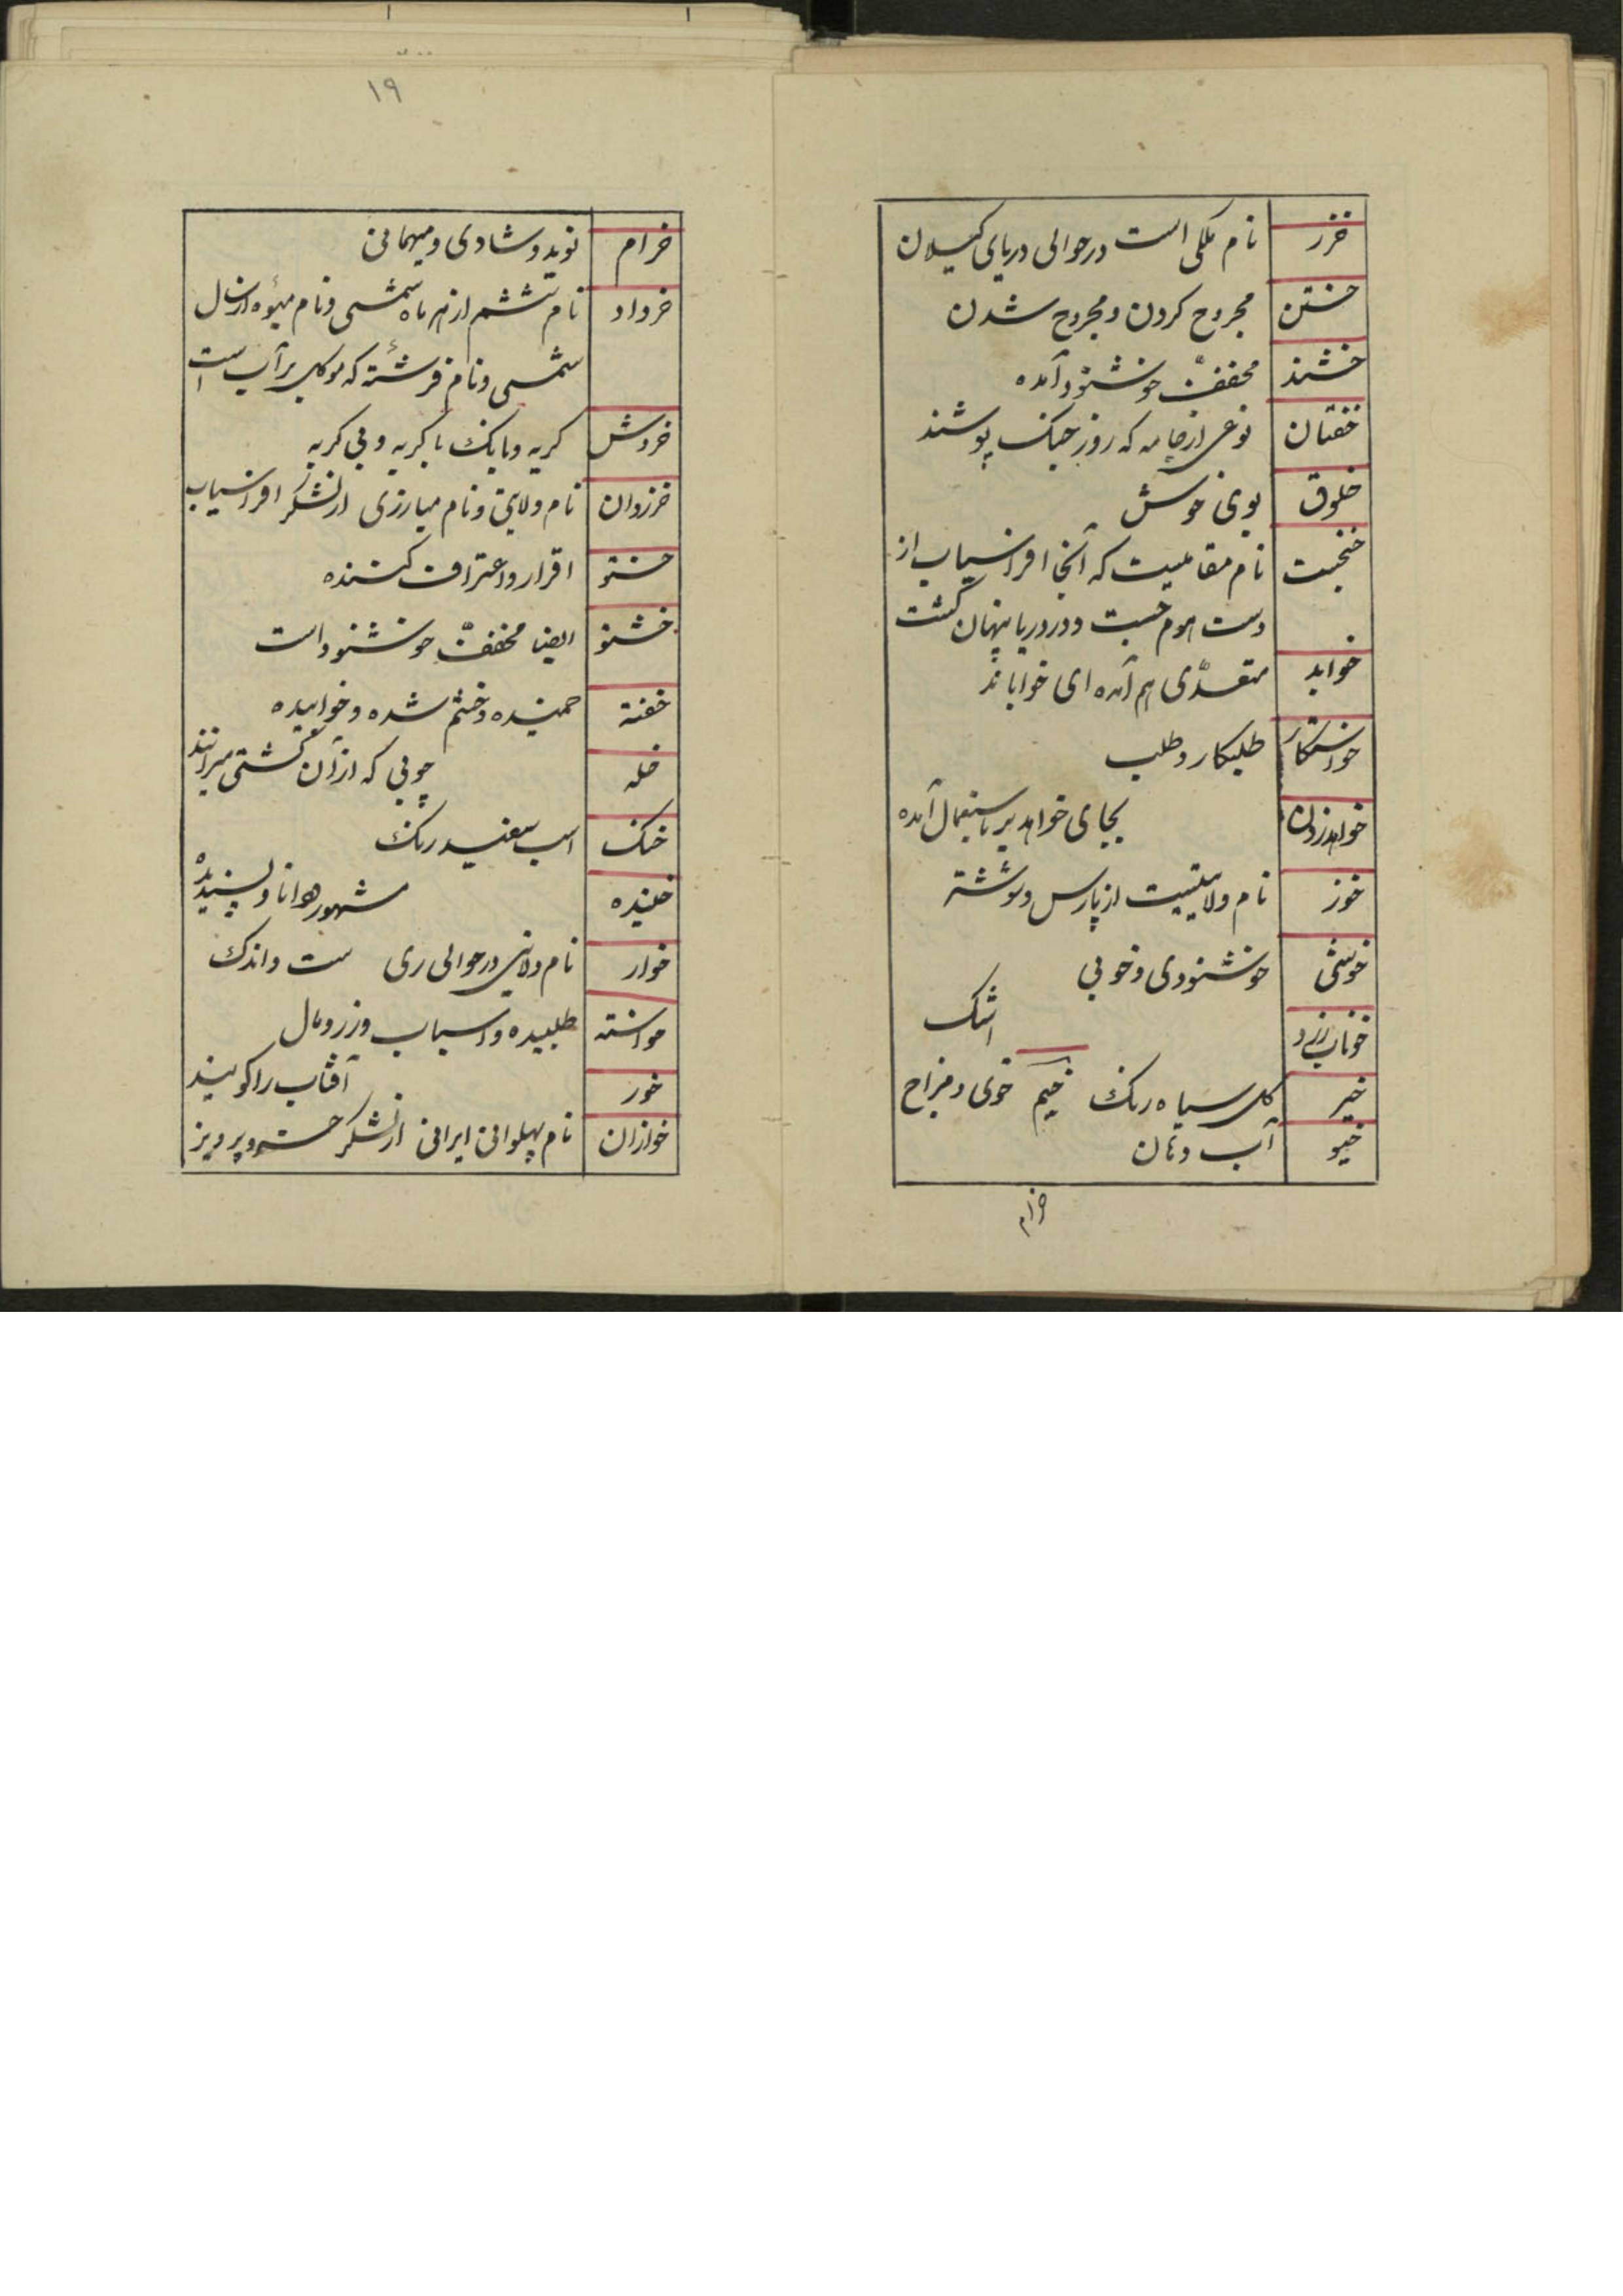 خزر نام ملکی است در حوالی دریای کیلان
خستن مجروح کردن و مجروح شدن
خشند مخفف خوشنود آمده
خفتان نوعی از جامه که روز جنک پوشند
خلوق بوی خوش
خنجست نام مقامیست که آنجا افراسیاب از
دست هوم جست و در دریا پنهان کشت
خوابد متعدّی هم آمده ای خواباند
خواستکار طلبکار و طلب
خواهد زدن بجای خواهد بر باستعمال آمده
خوز نام ولایتیست از پارس و شوشتر
خوشی خوشنودی و خوبی
خوناب زرد اشک
خیر کل سیاه رنک خیم خوی و مزاج
خیو آب دهان
خرام
۱۹
خرام نوید و شادی و میهمانی
خرداد نام ششم از هر ماه شمسی و نام میوه از سال
شمسی و نام فرشته که موکل بر آب است
خروش کریه و بانک با کریه و بی کریه
خزروان نام ولایتی و نام مبارزی از لشکر افراسیاب
خستو اقرار و اعتراف کننده
خشنو ایضا مخفف خوشنود است
خفته خمیده و ختم شده و خوابیده
خله چوبی که از آن کشتی میرانند
خنک اسب سفید رنک
خنیده مشهور و دانا و پسندیده
خوار نام ولایتی در حوالی ری ست و اندک
خواسته طلبیده و اسباب و زر و مال
خور آفتاب را کویند
خوازان نام پهلوانی ایرانی از لشکر خسرو پرویز